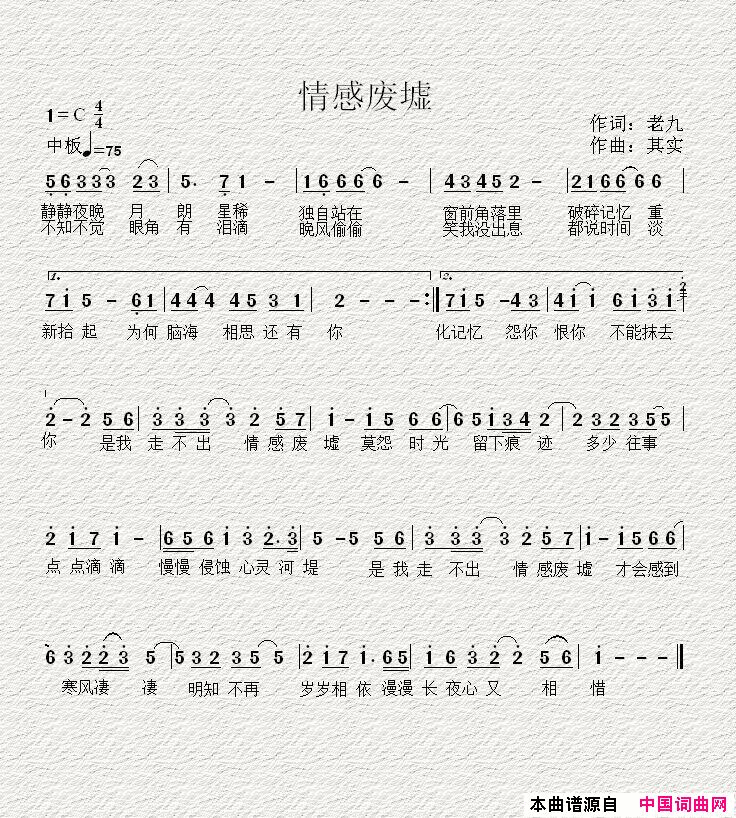 情感废墟
1=C 4/4
作词：老九
中板♩=75
作曲：其实
5 6 3 3 3 3 2 3 | 5. 7 1 - | 1 6 6 6 6 - | 4 3 4 5 2 - | 2 1 6 6 6 6 6 |
静静夜晚 月 朗 星稀 独自站在 窗前角落里 破碎记忆 重
不知不觉 眼角 有 泪滴 晚风偷偷 笑我没出息 都说时间 淡
1. 2.
7 1 5 - 6 1 | 4 4 4 4 5 3 1 | 2 - - :| 7 1 5 - 4 3 | 4 1 1 6 1 3 1 2
新拾起 为何 脑海 相思 还有 你 化记忆 怨你 恨你 不能抹去
2 - 2 5 6 | 3 3 3 3 3 2 5 7 | 1 - 1 5 6 6 | 6 5 1 3 4 2 | 2 3 2 3 5 5 |
你 是我 走不出 情感废 墟 莫怨 时光 留下痕 迹 多少 往事
2 1 7 1 - | 6 5 6 1 3 2. 3 | 5 - 5 5 6 | 3 3 3 3 2 5 7 | 1 - 1 5 6 6 |
点 点滴 滴 慢慢 侵蚀 心灵 河 堤 是 我 走 不出 情 感废 墟 才会感到
6 3 2 2 3 5 | 5 3 2 3 5 5 | 2 1 7 1. 6 5 | 1 6 3 2 2 5 6 | 1 - - - ‖
寒风凄 凄 明知 不再 岁岁相 依 漫漫 长 夜心 又 相 惜
本曲谱源自 中国词曲网